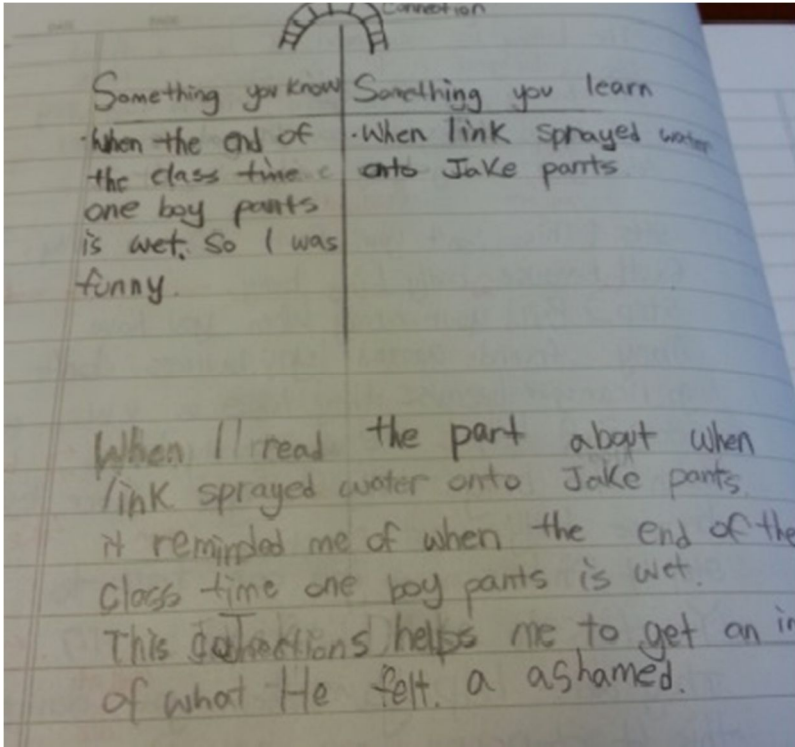 Connection
Something you know
When the end of
the class time
one boy pants
is wet. So I was
funny.
Something you learn
When link sprayed water
onto Jake pants
When I read the part about when
link sprayed water onto Jake pants.
it reminded me of when the end of the
class time one boy pants is wet.
This connections helps me to get an
of what He felt. a ashamed.